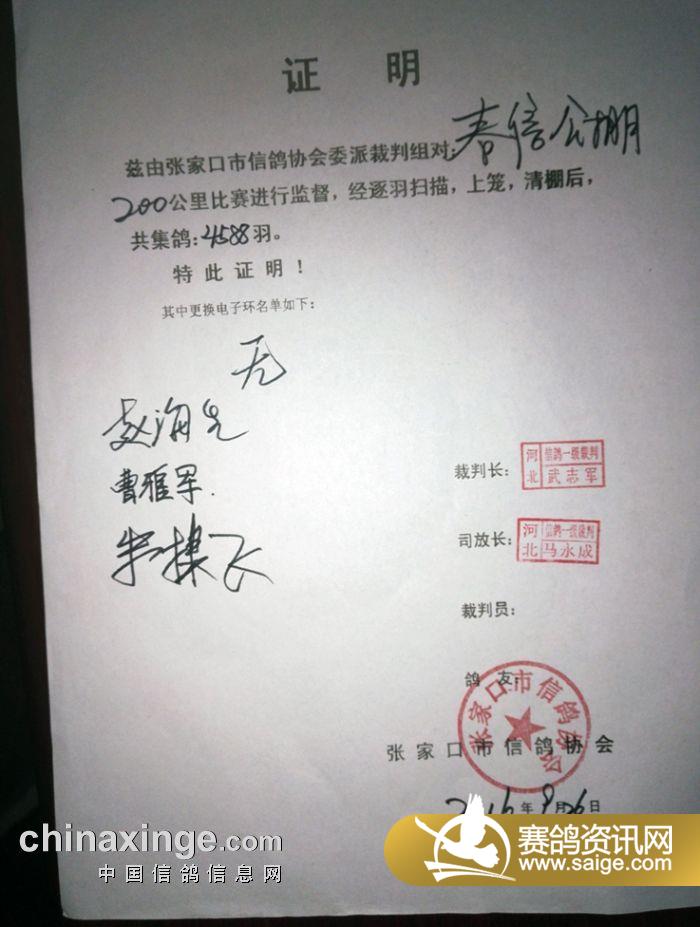 证 明
兹由张家口市信鸽协会委派裁判组对:春信公棚
200公里比赛进行监督，经逐羽扫描，上笼，清棚后，
共集鸽:4588羽。
特此证明！
其中更换电子环名单如下:
无
赵海
曹雅军.
飞
裁判长:
河北
信鸽一级裁判
武志军
司放长:
河北
信鸽一级裁判
马永成
裁判员:
鸽 友:
张家口市信鸽协会
张家口市信鸽协会
2016年9月26日
chinaxinge.com
中国信鸽信息网
赛鸽资讯网
www.saige.com